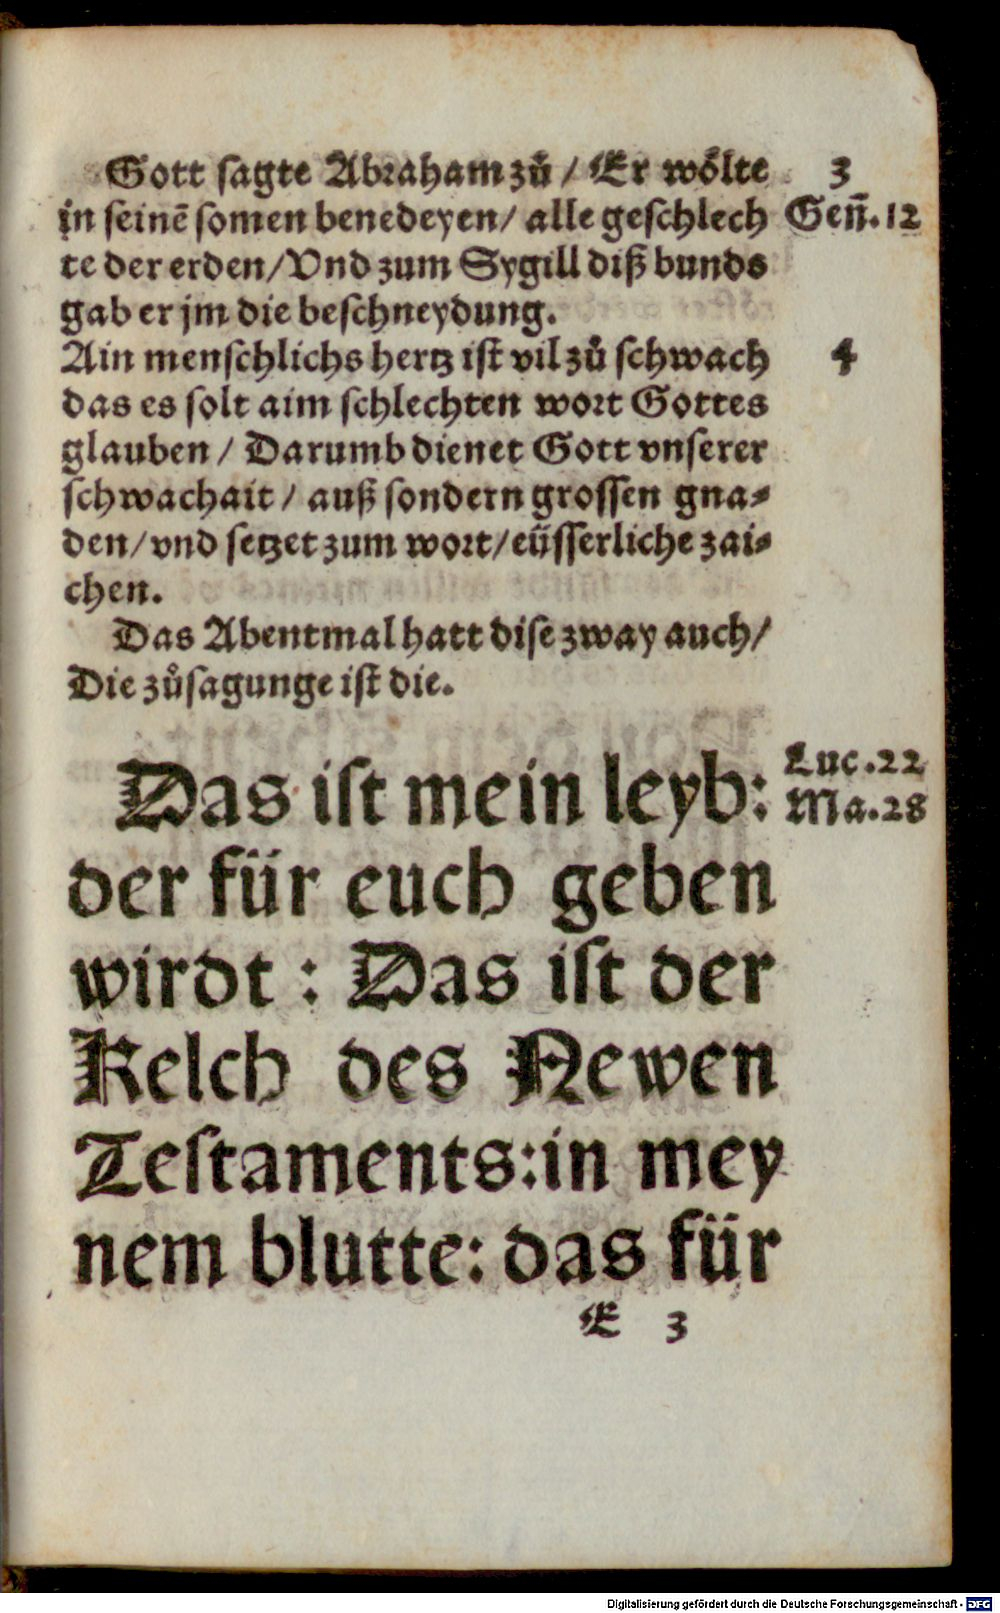 Gott sagte Abraham zů / Er wőlte 3
in seinē somen benedeyen/ alle geschlech Geñ.12
te der erden/Vnd zum Sygill diß bunds
gab er jm die beschneydung.
Ain menschlichs hertz ist vil zů schwach 4
das es solt aim schlechten wort Gottes
glauben / Darumb dienet Gott vnserer
schwachait / auß sondern grossen gna⸗
den/vnd setzet zum wort/eüsserliche zai⸗
chen.
Das Abentmal hatt dise zway auch/
Die zůsagunge ist die.
Das ist mein leyb: Luc.22
Ma.28
der für euch geben
wirdt : Das ist der
Kelch des Newen
Testaments:in mey
nem blutte: das für
E 3
Digitalisierung gefördert durch die Deutsche Forschungsgemeinschaft - DFG